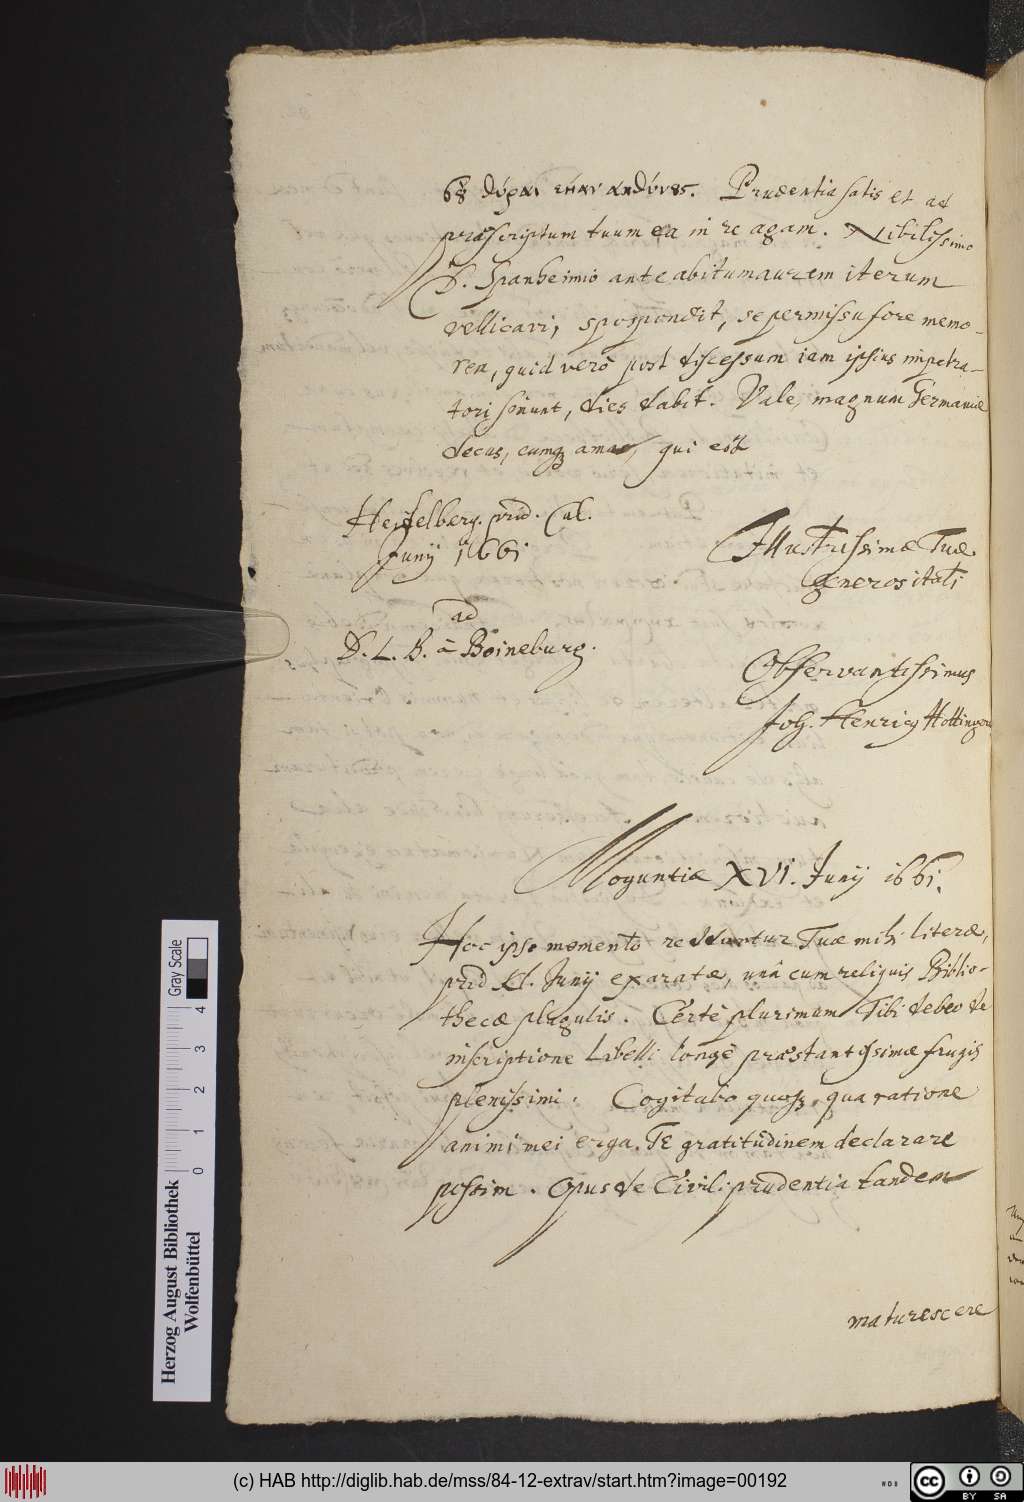 Prudentia satis et ad
præscriptum tuum ea in re agam. Nobilissimo
D. Spanhemio ante abitum aurem iterum
vellicavi, spopondit, se permissu fore memo-
rem, quid verò post discessum iam ipsius impetra-
turi sinunt, dies dabit. Vale, magnum Germaniæ
decus, eumq; ama, qui est
Heidelberg. prid. Cal.
Junij 1661
Illustrissimæ Tuæ
generositati
ad
D. L. B. à Boineburg.
Observantissimus
Joh. Henricq Hottinger
Moguntiæ XVI. Junij 1661.
Hoc ipso momento redduntur Tuæ mihi literæ,
prid Kl. Junij exaratæ, unà cum reliquis Biblio-
thecæ plagulis. Certè plurimum Tibi debeo de
inscriptione Libelli longè præstantissimæ frugis
plenissimi. Cogitabo quoq;, qua ratione
animi mei erga TE gratitudinem declarare
possim. Opus de Civili prudentia tandem
maturescere
Gray Scale
4
3
2
1
0
Herzog August Bibliothek
Wolfenbüttel
(c) HAB http://diglib.hab.de/mss/84-12-extrav/start.htm?image=00192
WDB
cc BY SA